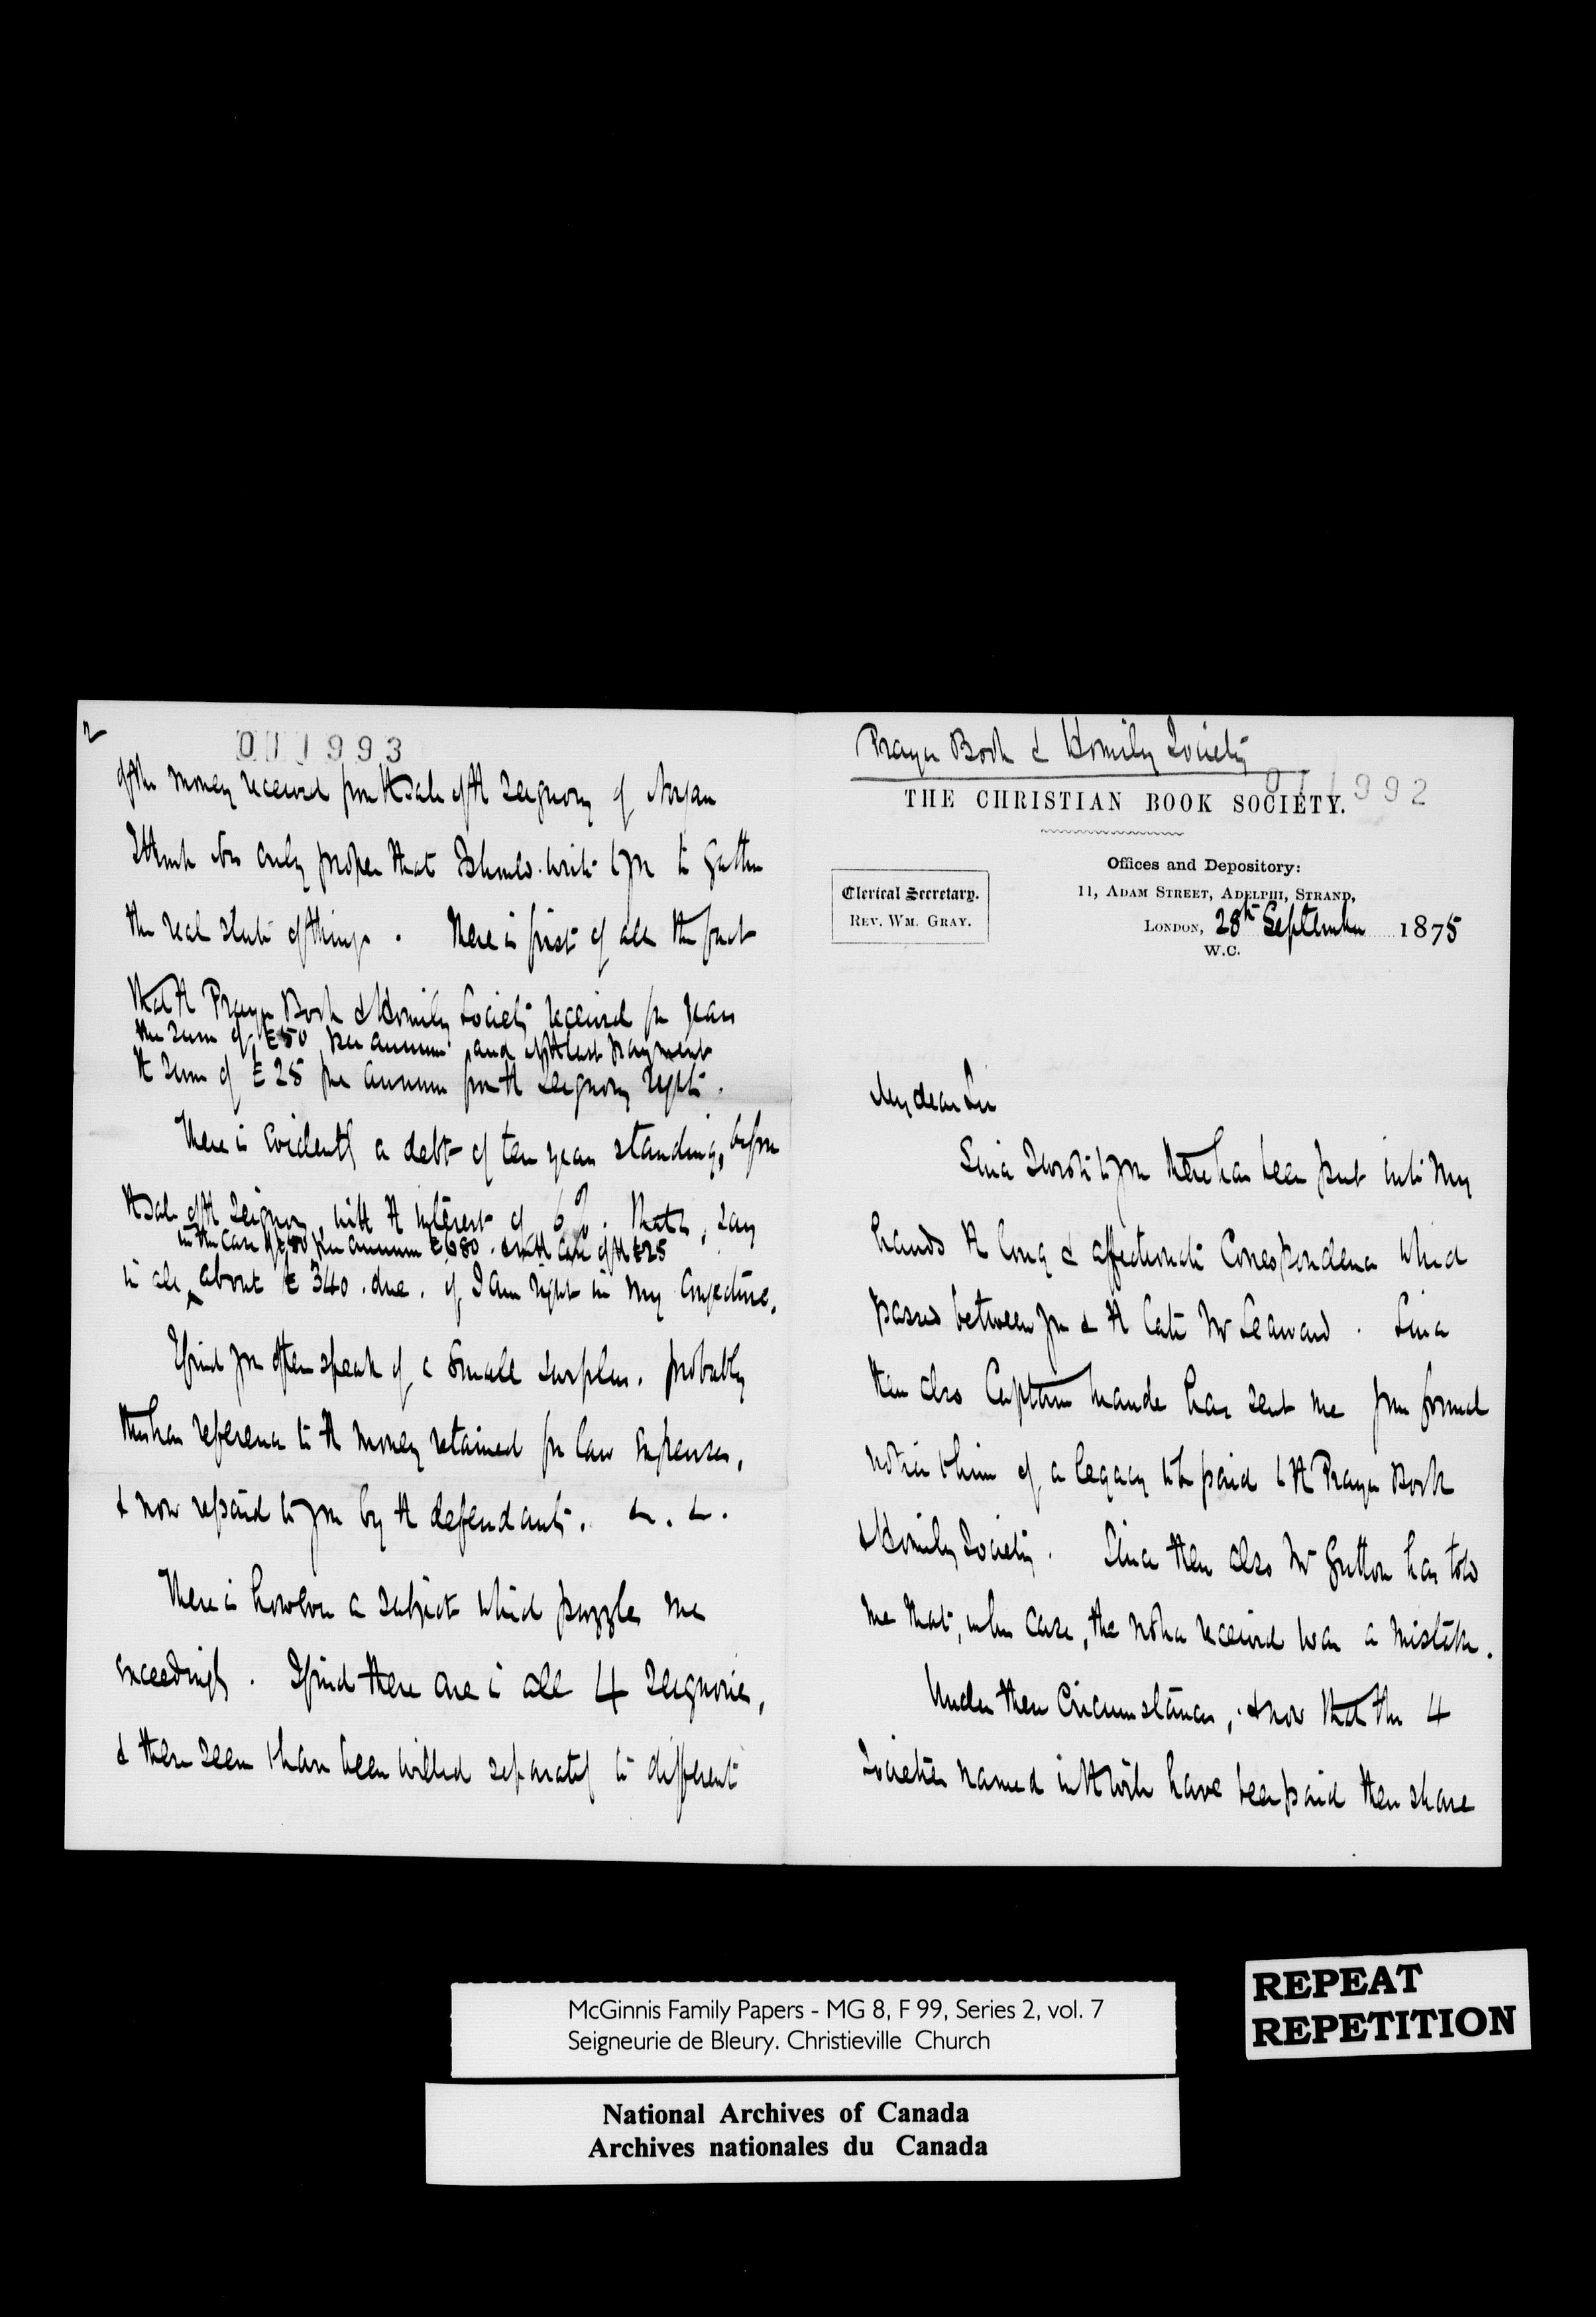 Prayer Book & Homily Society
011992
THE CHRISTIAN BOOK SOCIETY.
Offices and Depository:
11, ADAM STREET, ADELPHI, STRAND,
Clerical Secretary.
REV. WM. GRAY.
LONDON, 28th September 1875
W.C.
My dear Sir
Since I wrote to you there has been put into my
hands the long & affectionate Correspondence which
passed between you & the late Mr Seaward. Since
then also Captain Maude has sent me your formal
notice to him of a legacy to be paid to the Prayer Book
& Homily Society. Since then also Mr has told
me that, in his case, the notice received was a mistake.
Under these Circumstances, & now that the 4
Societies named in the will have been paid their share
2
011993
of the money received from the sale of the Seignory of Noyan
I think it is only proper that I should write to you to gather
the real state of things. There is first of all the fact
that the Prayer Book & Homily Society received for years
the sum of £50 per annum and at the last payment
the sum of £25 per annum from the Seignory rights.
There is evidently a debt of ten years standing, before
the sale of the Seignory, with the interest of 6%. That is, say
in the case of £50 per annum £680. & in the case of the £25
in all about £340. due. if I am right in my Conjecture.
I find you often speak of a small surplus. probably
this has reference to the money retained for law expenses,
& now repaid to you by the defendants. &. &.
There is however a subject which puzzles me
exceedingly. I find there are in all 4 Seignories,
& these seem to have been willed separately to different
McGinnis Family Papers - MG 8, F 99, Series 2, vol. 7
Seigneurie de Bleury. Christieville Church
REPEAT
REPETITION
National Archives of Canada
Archives nationales du Canada